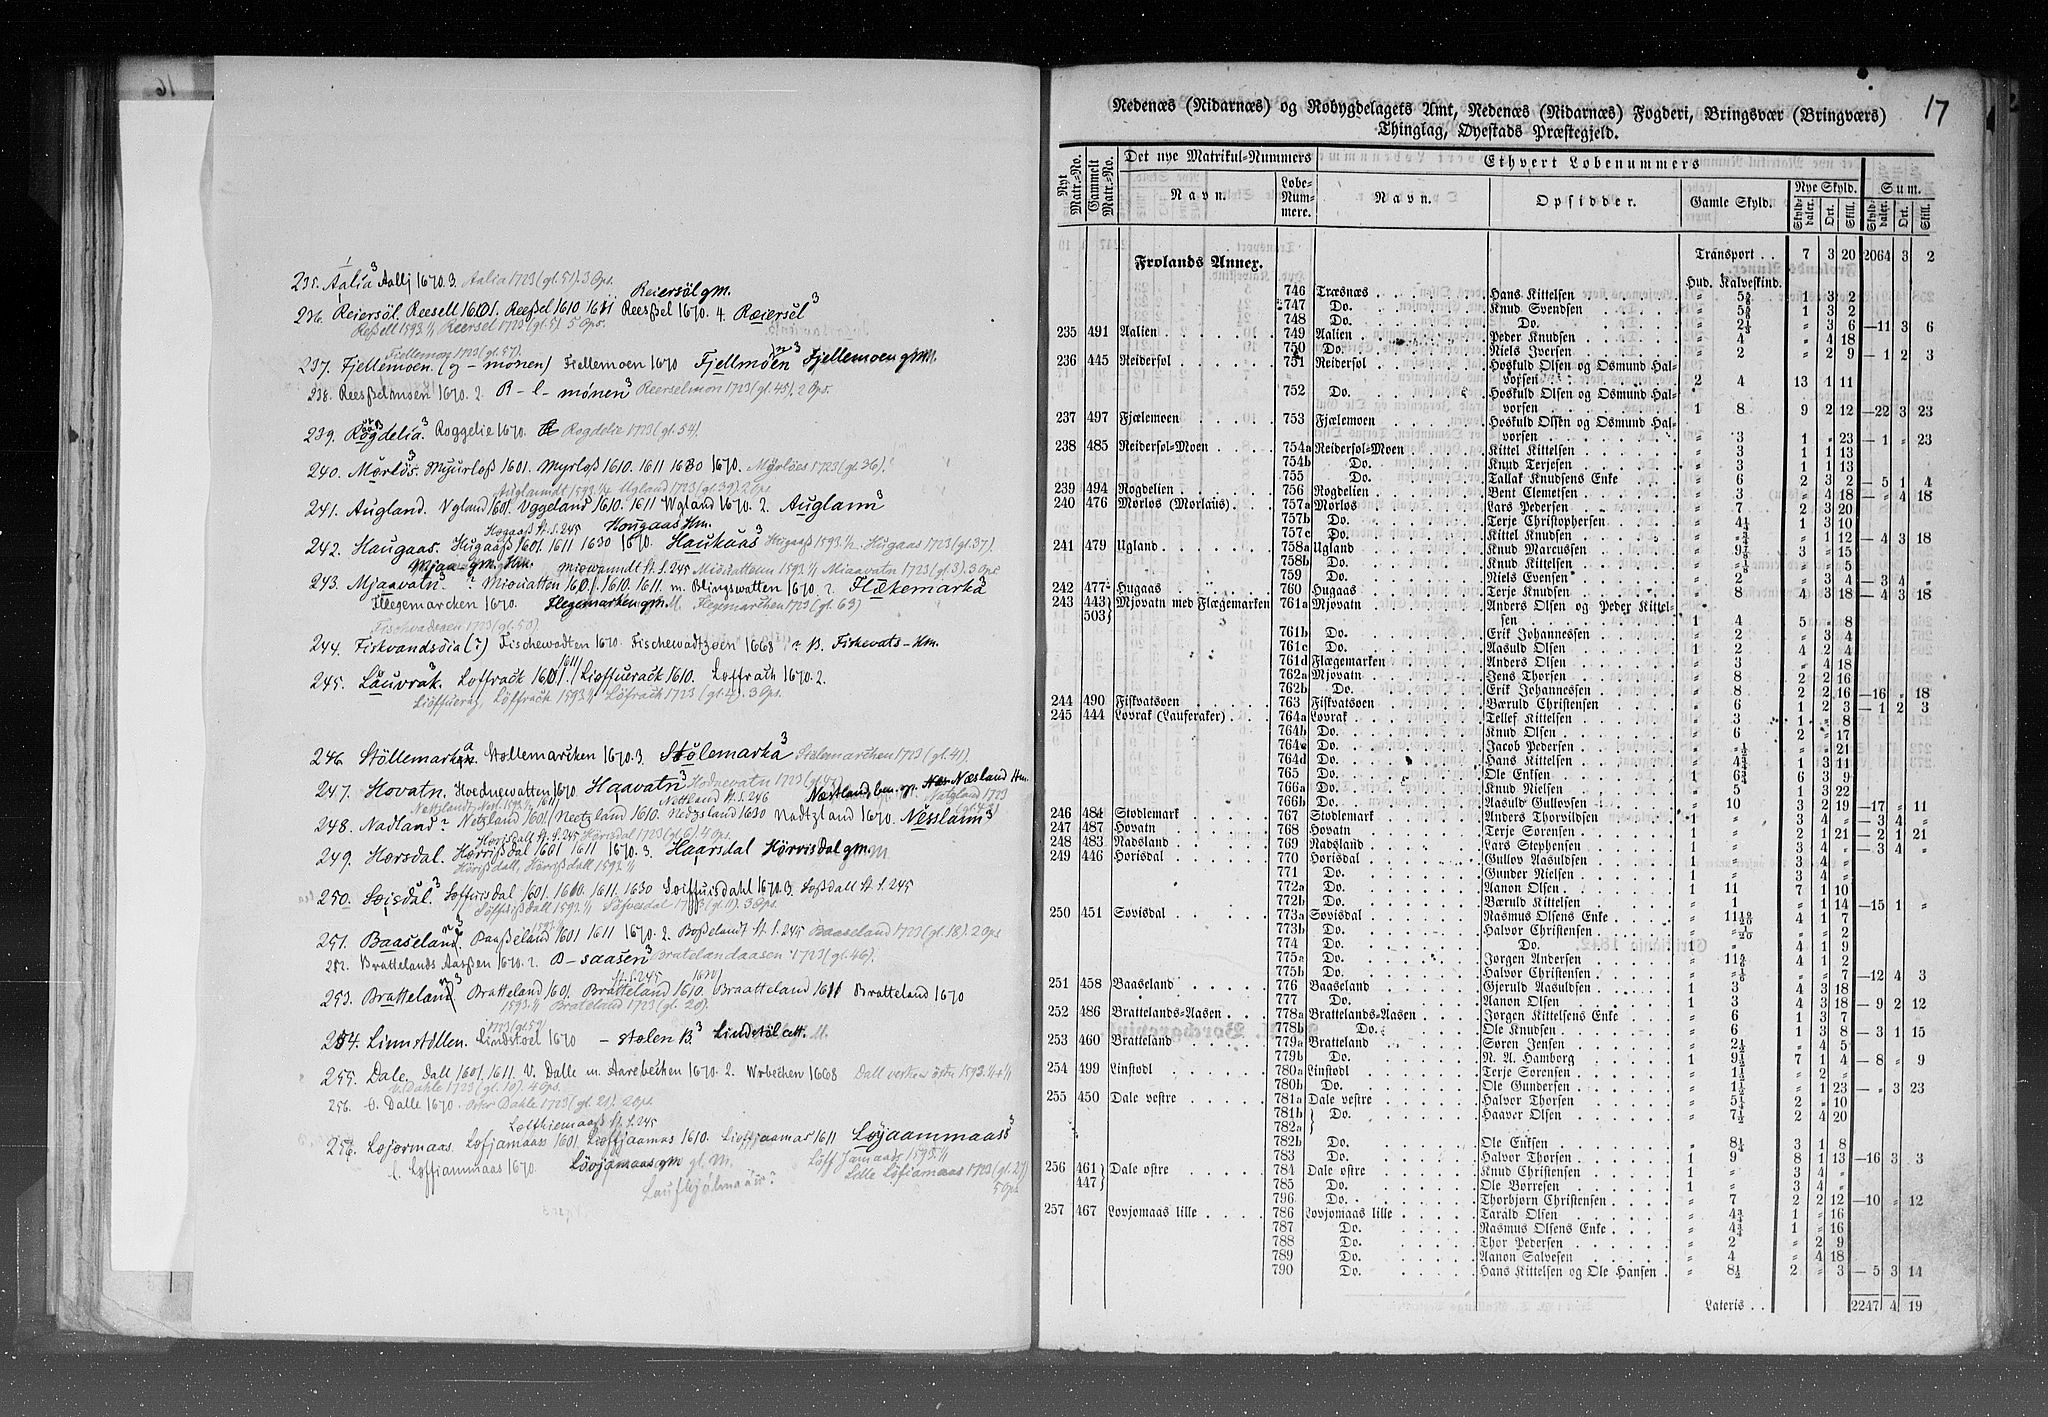 235. Aalia Aallj 1670. 3. Aalia 1723 (gl. 51). 3 Ops.
Reiersöl gm.
236. Reiersöl. Reesell 1601. Reeßel 1610 1611 Reesßel 1670. 4. Ræiersöl
Reßell 1593 1/1 Reersel 1723 (gl. 5) 5 Ops.
Fiellemon 1723 (gl. 57).
237. Fjellemoen. (g - monen) Fiellemoen 1670 Fjellmoen Fjellemoen gm.
238. Reesßelmoen 1670. 2. R - l - mónen Reerselmon 1723 (gl. 45). 2 Ops.
239. Rogdelia. Roggelie 1670. Rogdelie 1723 (gl. 54).
240. Mørløs. Myurloß 1601. Myrloß 1610. 1611 1630 1670. Mørlöes 1723 (gl. 36).
Auglanndt 1593 1/4 Ugland 1723 (gl. 39) 2 Ops
241. Augland. Vgland 1601. Vggeland 1610. 1611 Wgland 1670. 2. Auglann
Hougaas Hm.
242. Haugaas. Hugaaß 1601. 1611 1630 1670. Haukaas Hugaas 1723 (gl. 37).
243. Mjaavatn. ? Miovatten 1601. 1610. 1611. m. Blingswatten 1670 2. Flækemarka
Flegemarcken 1670. Flegemarken gm. Flegemarchen 1723 (gl. 63)
Fischvadsøen (gl. 50)
244. Fiskvandsöia (?) Fischewadten 1670. Fischewadtzøen 1668 ? B. Fiskevats - Hm.
245. Lauvrak. Loffrack 1601. 1611 Lioffuerack 1610. Loffrach 1670. 2.
Löffrack 1593 1/4 Löfrach 1723 (gl. 4). 3 Ops.
246. Stöllemarka. Støllemarcken 1670. 3. Stölemarka Stølemarchen 1723 (gl. 41).
247. Hovatn. Hoednewatten 1670 Haavatn Hodnevatn 1723
248. Nadland? Netzland 1601 Neetzland 1610. Nedzsland 1630 Nadtzland 1670. Nesslann
Hørisdall St. S. 245 Hørisdal 1723 (gl. 6) 4 Ops.
249. Hørsdal. Hørrißdal 1601 1611 1670. 3. Haarsdal Hörrisdal gm.
Hörißdall, Hörisdall 1593 1/1
250. Soeisdal. Søffuisdal 1601. 1610. 1611. 1630 Søiffuisdahl 1670. 3. Soßdall St. S. 245
Söffrißdall 1593 1/1 Söfvesdal 1723 (gl. 11). 3 Ops.
251. Baaseland. Baaßeland 1601 1611 1670. 2. Boßelandt St. S. 245 Baaseland 1723 (gl. 18). 2 Ops
252. Brattelands Aasßen 1670. 2. B - saasen Bratelandaasen 1723 (gl. 46).
253. Bratteland Bratteland 1601. Bratteland 1610. Braatteland 1611 Bratteland 1670
1593 1/1 Brateland 1723 (gl. 20).
1723 (gl. 59)
254. Linnstöllen. Lindstoel 1670 - stølen B. Lindstöl
255. Dale. Dall 1601. 1611. V. Dalle m. Aarebecken 1670. 2. Wrbechen 1668
V. Dahle 1723 (gl. 10). 4 Ops.
256. Ö. Dalle 1670. Öster Dahle 1723 (gl. 21). 2 Ops.
Lotthiemaaß St. S. 245
256. Løjormaas. Løfjamaass 1601. Lioffjaamas 1610. Lioffjaamas 1611 Løyaammaas
l. Løffiammaas 1670. Lövjamaas gm gl. M. Lille Löfiamaas 1723 (gl. 27)
Laufhjalmaass? 5 Ops
17
Nedenæs (Nidarnæs) og Robygdelagets Amt, Nedenæs (Nidarnæs) Fogderi, Bringsvær (Bringværs)
Thinglag, Øyestads Præstegjeld.
Nyt Matr.-No. Gammelt Matr.-No. Det nye Matrikul-Nummers Ethvert Løbenummers
Navn. Løbe-Nummere. Navn. Opsidder. Gamle Skyld. Nye Skyld. Sum.
Skylddaler. Ort. Skill. Skylddaler. Ort. Skill.
Transport . . 7 3 20 2064 3 2
Frolands Annex. Hud. Kalveskind.
746 Træsnæs Hans Kittelsen " 5 5/6 1 3 2
747 Do. Knud Svendsen " 5 5/6 1 3 2
748 Do. Do. " 2 1/3 " 3 6 —11 3 6
235 491 Aalien 749 Aalien Peder Knudsen " 4 " 4 18
750 Do. Niels Iversen " 2 " 2 9 — 1 2 3
236 445 Reidersøl 751 Reidersøl Hoskuld Olsen og Osmund Halvorsen 2 4 13 1 11
752 Do. Hoskuld Olsen og Osmund Halvorsen 1 8 9 2 12 —22 3 23
237 497 Fjælemoen 753 Fjælemoen Hoskuld Olsen og Osmund Halvorsen " 3 1 " 23 — 1 " 23
238 485 Reidersøl-Moen 754a Reidersøl-Moen Kittel Kittelsen " 3 1 1 13
754b Do. Knud Terjesen " 3 1 1 13
755 Do. Tallak Knudsens Enke " 6 2 3 2 — 5 1 4
239 494 Rogdelien 756 Rogdelien Bent Clemetsen " 3 " 4 18 — " 4 18
240 476 Mørløs (Mørlaüs) 757a Mørløs Lars Pedersen " 7 2 3 20
757b Do. Terje Christophersen " 4 1/4 1 3 10
757c Do. Kittel Knudsen " 3/4 " 1 12 — 4 3 18
241 479 Ugland 758a Ugland Knud Marcussen " 9 3 " 15
758b Do. Knud Kittelsen " 1/8 " " 5
759 Do. Niels Evensen " 2 " 3 4 — 3 4 "
242 477 Hugaas 760 Hugaas Terje Knudsen " 8 4 3 18 — 4 3 18
243 443 503 Mjovatn med Flægemarken 761a Mjovatn Anders Olsen og Peder Kittelsen 1 4 5 " 8
761b Do. Erik Johannessen " 2 " 3 4
761c Do. Aasuld Olsen 1 2 4 2 4
761d Flægemarken Anders Olsen " 3 " 4 18
762a Mjovatn Jens Thorsen " 8 2 2 16
762b Do. Erik Johannessen " 8 2 2 16 —16 " 18
244 490 Fiskvatsøen 763 Fiskvatsøen Bæruld Christensen " 6 1 2 3 — 1 2 3
245 444 Lovrak (Lauferaker) 764a Lovrak Tellef Kittelsen " 3 1 " 8
764b Do. Knud Olsen " 6 2 " 17
764c Do. Jacob Pedersen " 1/2 " " 21
764d Do. Hans Kittelsen " 4 3/4 1 3 11
765 Do. Ole Eriksen 1 6 3/4 6 3 9
766a Do. Knud Nielsen " 5 1 3 22
766b Do. Aasuld Gullovsen " 10 3 2 19 —17 " 11
246 484 Stødlemark 767 Stødlemark Anders Thorvildsen 1 " 3 4 " — 3 4 "
247 487 Hovatn 768 Hovatn Terje Sørensen 1 " 2 1 21 — 2 1 21
248 483 Nadsland 769 Nadsland Lars Stephensen 1 " 3 4 " — 3 4 "
249 446 Horisdal 770 Horisdal Gullov Aasuldsen 1 " 3 4 "
771 Do. Gunder Nielsen 1 " 3 4 "
772a Do. Aanon Olsen 1 11 7 1 10
772b Do. Bæruld Kittelsen " 1 " 1 14 —15 1 "
250 451 Søvisdal 773a Søvisdal Rasmus Olsens Enke " 11 19/20 4 1 7
773b Do. Halvor Christensen " 1/20 " " 2
774 Do. Do. " " 4 1 9
775a Do. Jørgen Andersen " 11 5/6 4 1 2
775b Do. Halvor Christensen " 1/6 " " 7 —12 4 3
251 458 Baaseland 776 Baaseland Gjeruld Aasuldsen 1 3 4 3 18
777 Do. Aanon Olsen 1 3 4 3 18 — 9 2 12
252 486 Brattelands-Aasen 778a Brattelands-Aasen Jørgen Kittelsens Enke " 6 1 3 7
778b Do. Ole Knudsen " 6 1 3 8 — 3 1 15
253 460 Bratteland 779a Bratteland Søren Jensen " 2 1/2 " 4 5
779b Do. N. A. Hamborg 1 9 1/2 7 1 4 — 8 " 9
254 499 Linstødl 780a Linstødl Terje Sørensen " 1 1/2 " 2 "
780b Do. Ole Gundersen " 1 1/2 " 1 23 — " 3 23
255 450 Dale vestre 781a Dale vestre Halvor Thorsen " 5 1/4 2 " 10
781b 782a Do. Haaver Olsen " 7 1/2 2 4 20
782b Do. Ole Eriksen " 8 1/4 3 1 8
783 Do. Halvor Thorsen 1 9 8 1 13 —16 3 3
256 461 447 Dale østre 784 Dale østre Knud Christensen 1 " 3 4 "
785 Do. Ole Børresen 1 " 3 4 "
796 Do. Thorbjørn Christensen " 7 2 2 12 —10 " 12
257 467 Lovjomaas lille 786 Lovjomaas lille Tarald Olsen " 4 3/4 1 " 16
787 Do. Rasmus Olsens Enke " 4 3/4 1 " 16
788 Do. Thor Pedersen " 2 " 2 9
789 Do. Aanon Salvesen " 4 " 4 18
790 Do. Hans Kittelsen og Ole Hansen " 8 1/2 2 " 3 — 5 3 14
Lateris . . 2247 4 19